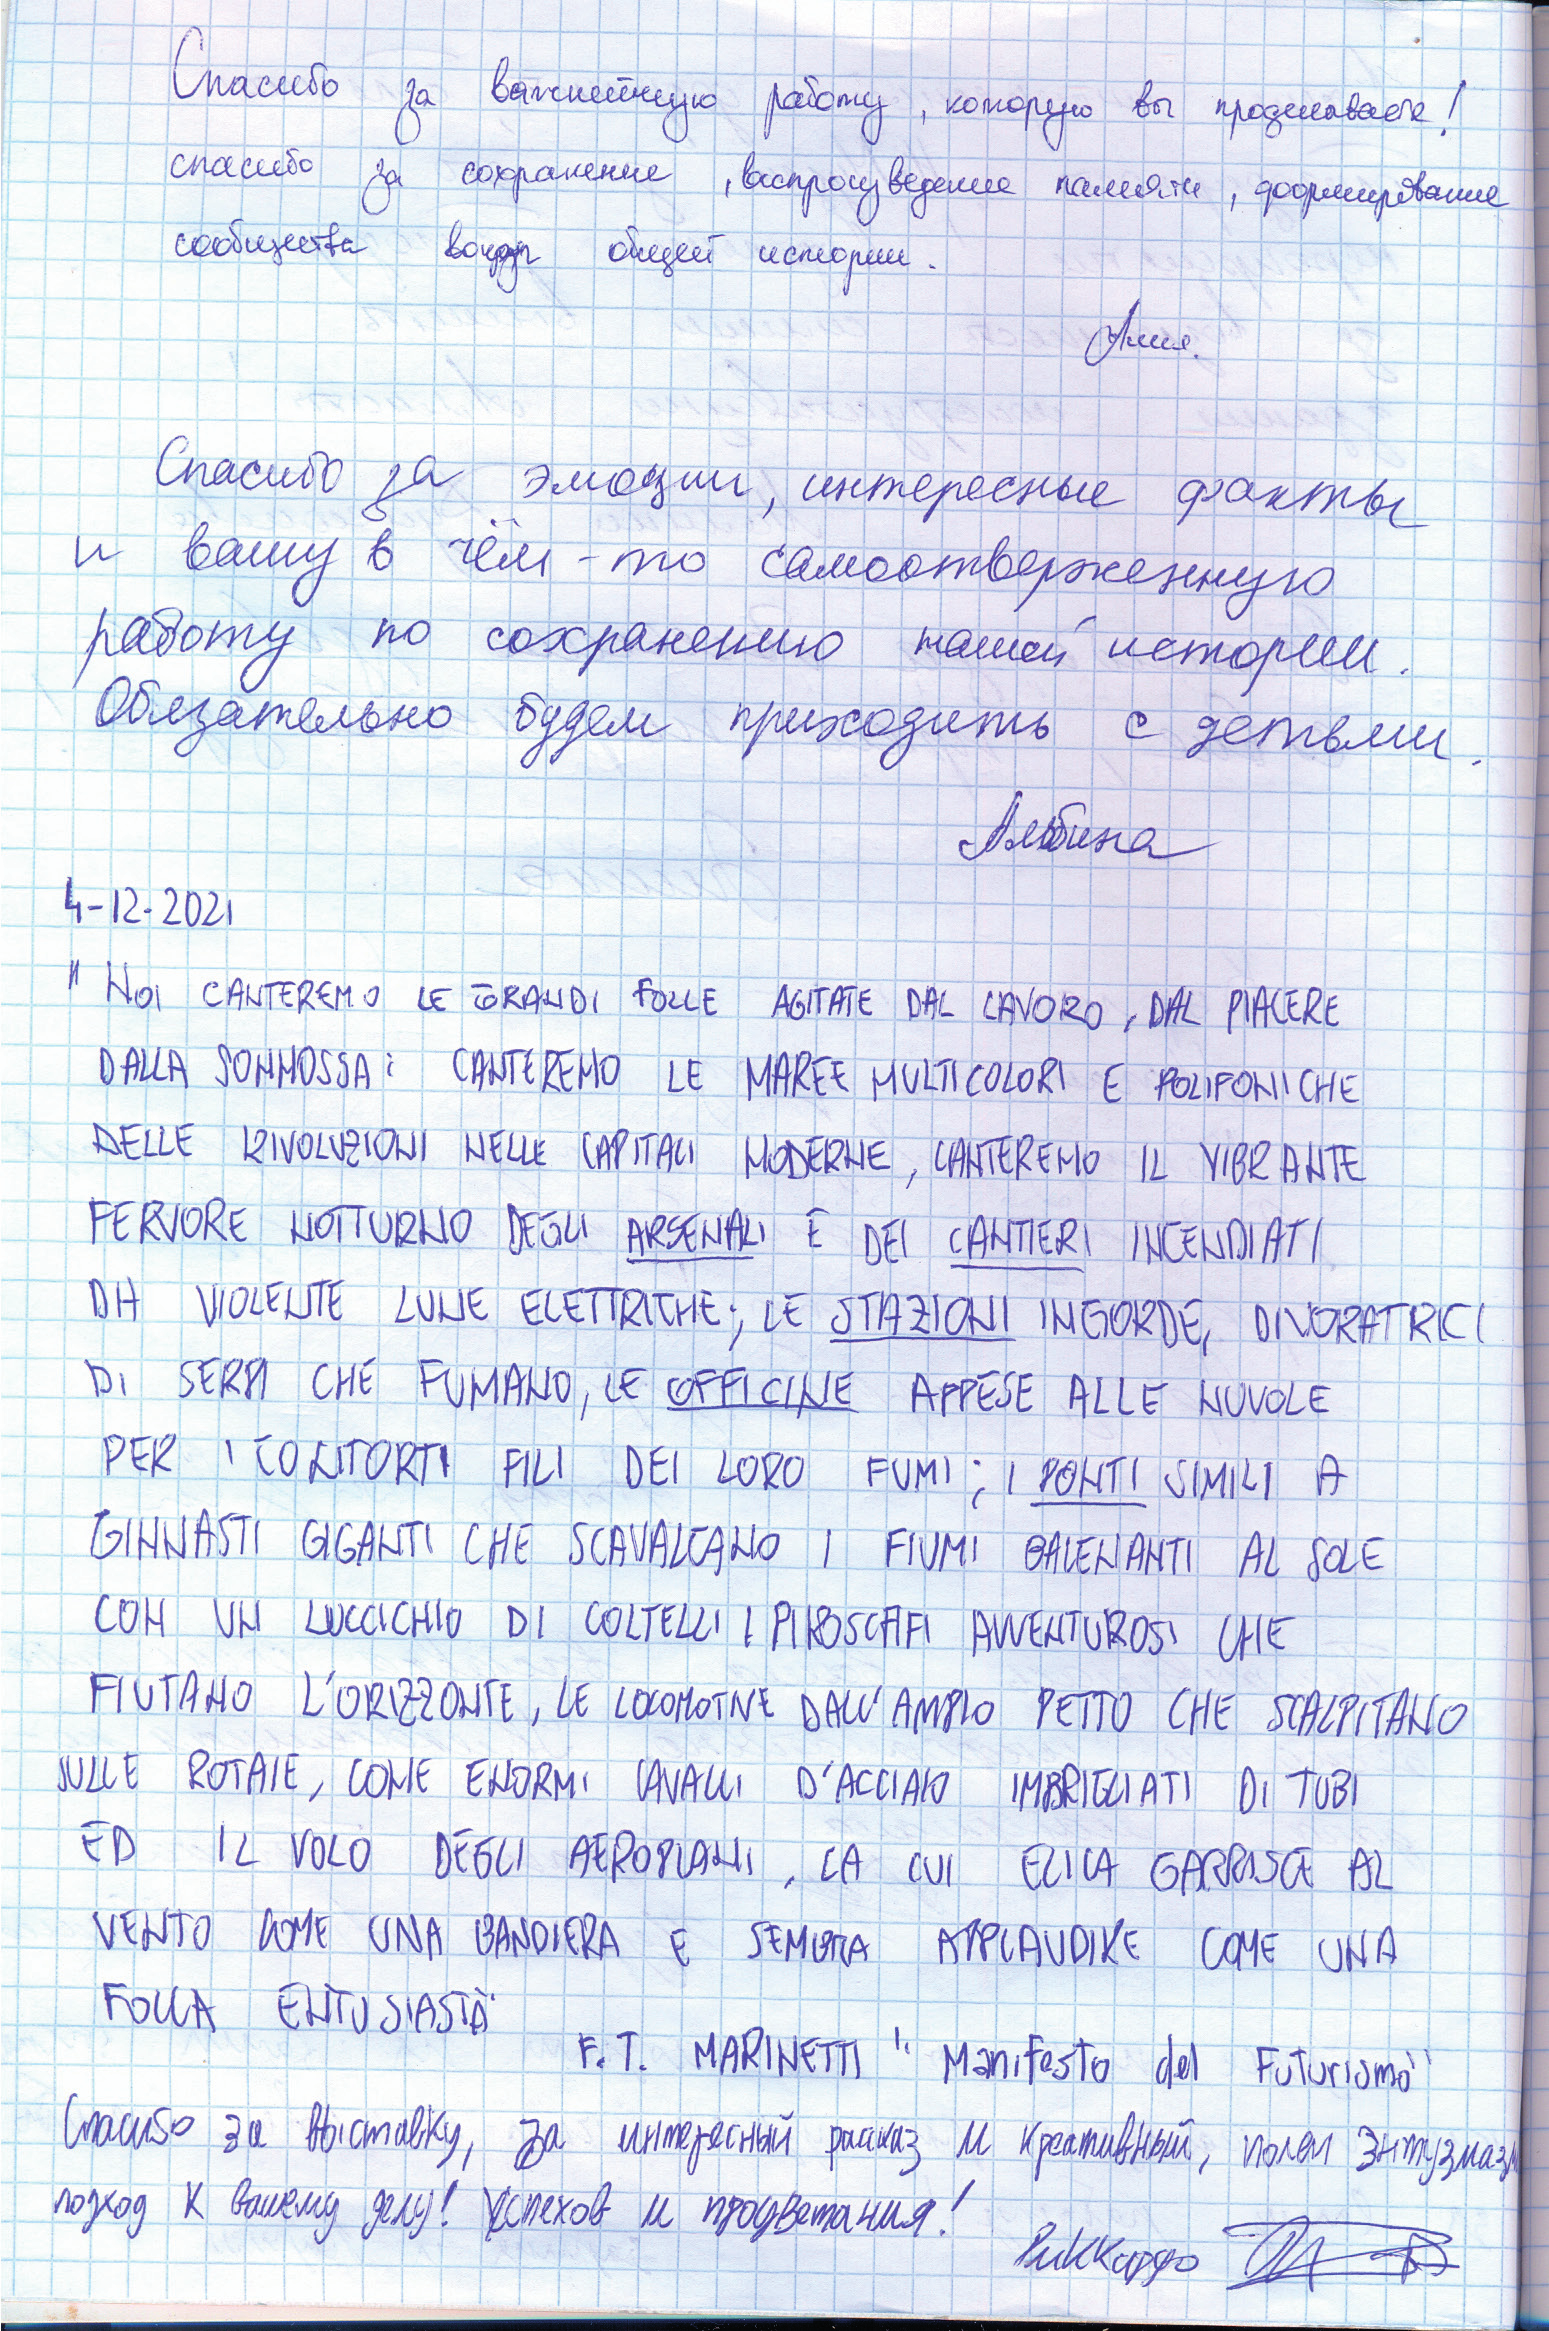 Спасибо за важнейшую работу, которую вы проделываете!
спасибо за сохранение, воспроизведение памяти, формирование
сообщества вокруг общей истории.
Спасибо за эмоции, интересные факты
и вашу в чём-то самоотверженную
работу по сохранению нашей истории.
Обязательно будем приходить с детьми.
Альбина
4-12-2021
"NOI CANTEREMO LE GRANDI FOLLE AGITATE DAL LAVORO, DAL PIACERE
DALLA SOMMOSSA: CANTEREMO LE MAREE MULTICOLORI E POLIFONICHE
DELLE RIVOLUZIONI NELLE CAPITALI MODERNE, CANTEREMO IL VIBRANTE
FERVORE NOTTURNO DEGLI ARSENALI E DEI CANTIERI INCENDIATI
DA VIOLENTE LUNE ELETTRICHE; LE STAZIONI INGORDE, DIVORATRICI
DI SERPI CHE FUMANO, LE OFFICINE APPESE ALLE NUVOLE
PER I CONTORTI FILI DEI LORO FUMI; I PONTI SIMILI A
GINNASTI GIGANTI CHE SCAVALCANO I FIUMI BALENANTI AL SOLE
CON UN LUCCICHIO DI COLTELLI I PIROSCAFI AVVENTUROSI CHE
FIUTANO L'ORIZZONTE, LE LOCOMOTIVE DALL'AMPIO PETTO CHE SCALPITANO
SULLE ROTAIE, COME ENORMI CAVALLI D'ACCIAIO IMBRIGLIATI DI TUBI
ED IL VOLO DEGLI AEROPLANI, LA CUI ELICA GARRISCE AL
VENTO COME UNA BANDIERA E SEMBRA APPLAUDIRE COME UNA
FOLLA ENTUSIASTA"
F. T. MARINETTI "Manifesto del Futurismo"
Спасибо за выставку, за интересный рассказ и креативный, полем энтузмазм
подход к вашему делу! Успехов и процветания!
Риккардо